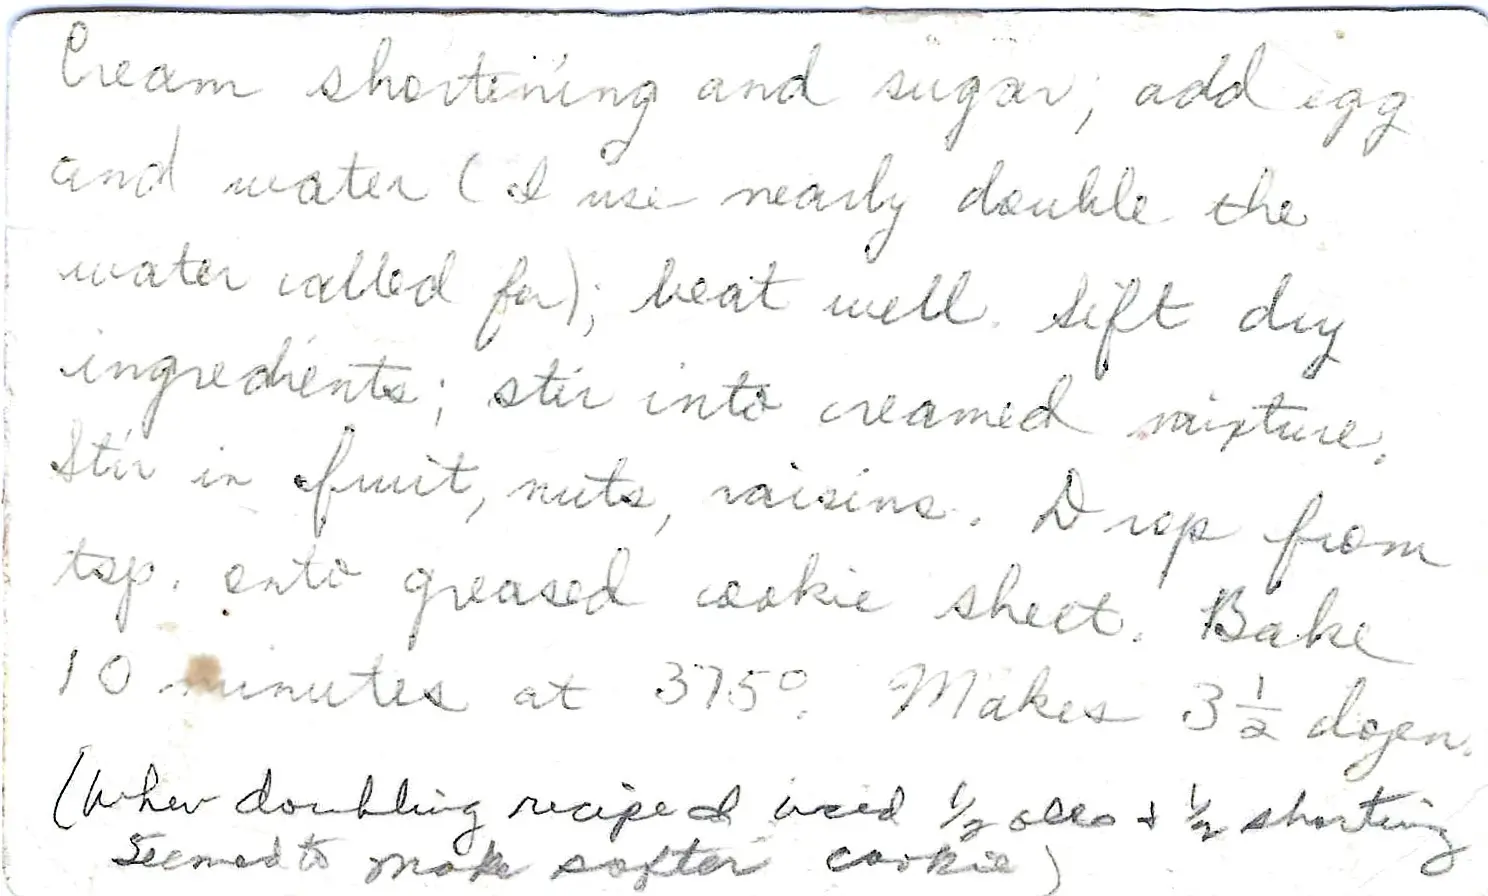 Cream shortening and sugar; add egg
and water (I use nearly double the
water called for); beat well. Sift dry
ingredients; stir into creamed mixture.
Stir in fruit, nuts, raisins. Drop from
tsp. onto greased cookie sheet. Bake
10 minutes at 375°. Makes 3 1/2 dozen.
(When doubling recipe I used 1/2 oleo + 1/2 shorting
Seemed to make softer cookie)